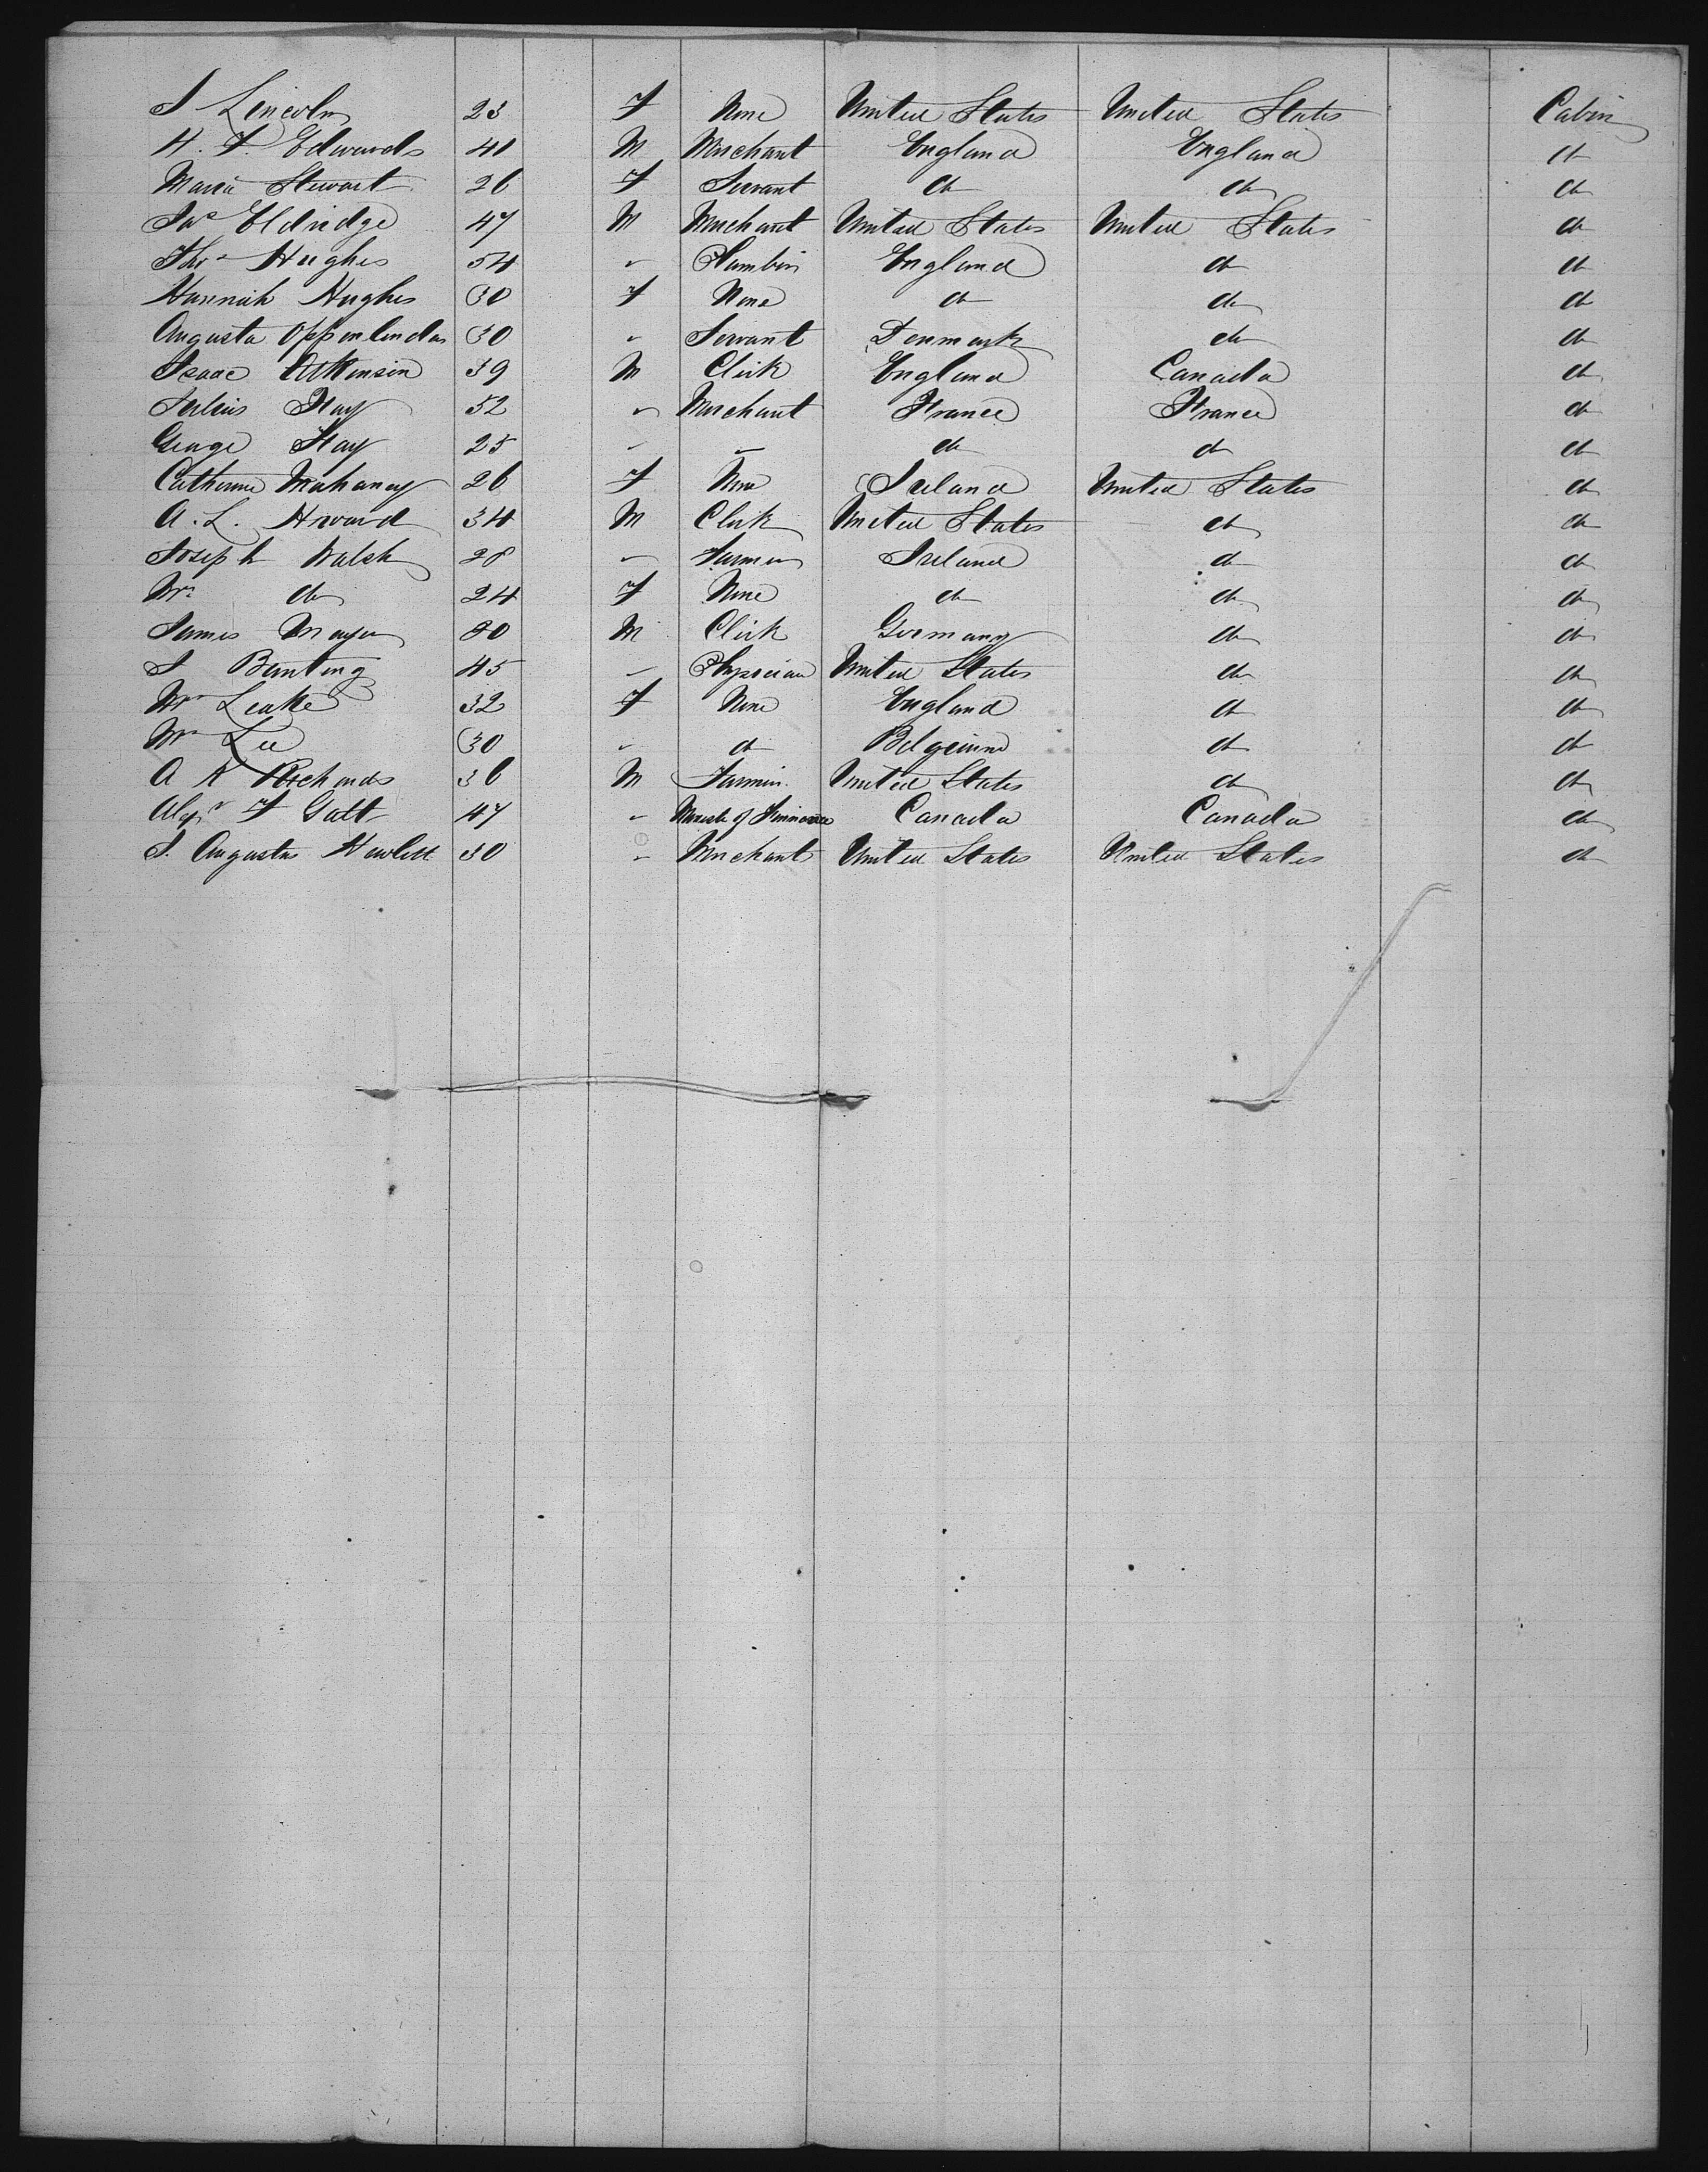 S Lincoln 23 F None United States United States Cabin
H. F. Edwards 41 M Merchant England England do
Maria Stewart 26 F Servant do do do
Jas Eldridge 47 M Merchant United States United States do
Thos Hughes 54 " Plumber England do do
Hannah Hughes 30 F None do do do
Augusta Oppenlendar 30 " Servant Denmark do do
Isaac Atkinson 39 M Clerk England Canada do
Julius Hay 52 " Merchant France France do
George Hay 25 " " do do do
Catherine Mahaney 26 F None Ireland United States do
A. L. Howard 34 M Clerk United States do do
Joseph Walsh 28 " Farmer Ireland do do
Mrs do 24 F None do do do
James Mayer 20 M Clerk Germany do do
S Banting 45 " Physician United States do do
Mrs Leake 32 F None England do do
Mrs Lee 30 " do Belgium do do
A K Richards 36 M Farmer United States do do
Alexr F Galt 47 " Minister of Finance Canada Canada do
S. Augustus Hewlett 30 " Merchant United States United States do